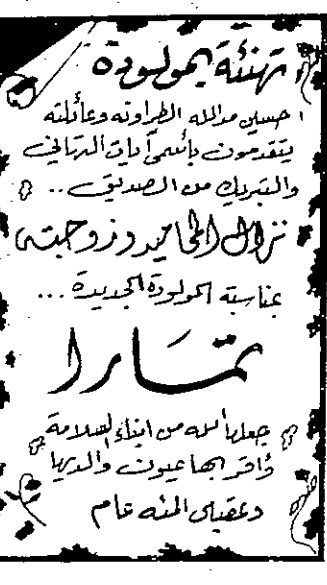 تهنئة بمولودة
حسين عبدالله الطراونه وعائلته
يتقدمون بأسمى آيات التهاني
والتبريك من الصديق ..
نزال المحاميد وزوجته
بمناسبة المولودة الجديدة ...
تمارا
جعلها الله من ابناء السلامة
وأقر بها عيون والديها
وعقبال المئه عام